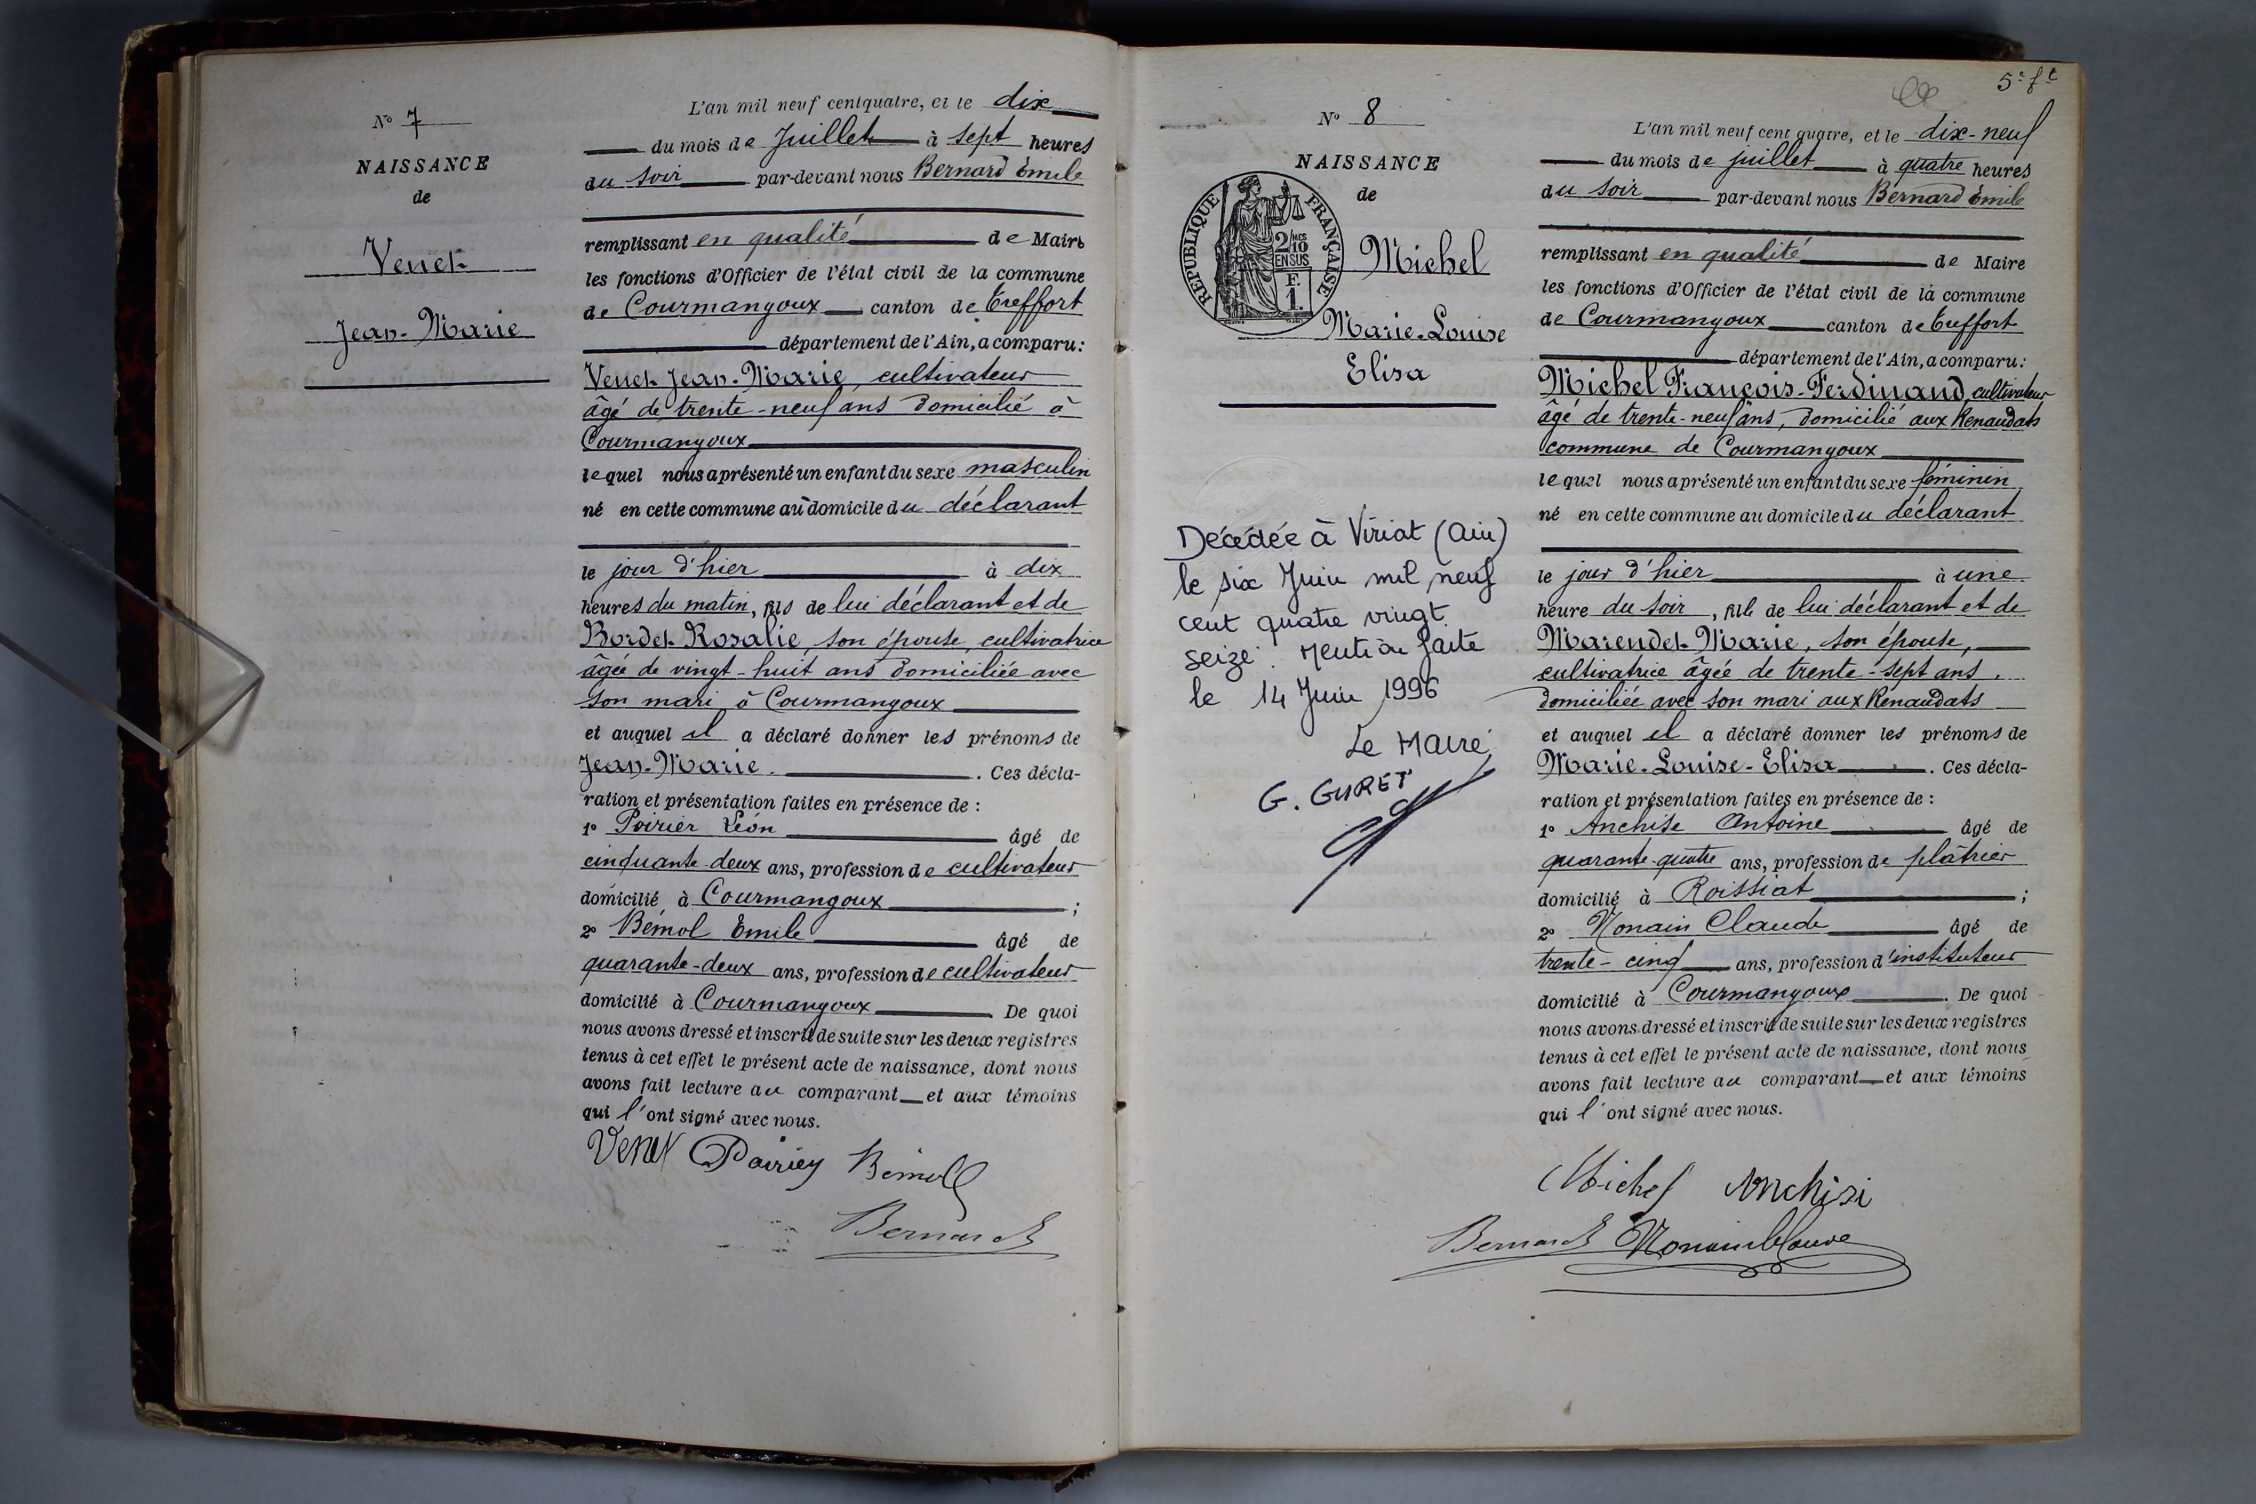 N° 7
NAISSANCE
de
Venet
Jean-Marie
L'an mil neuf cent quatre, et le dix
du mois de Juillet à sept heures
du soir par-devant nous Bernard Emile
remplissant en qualité de Maire
les fonctions d'Officier de l'état civil de la commune
de Courmangoux canton de Treffort
département de l'Ain, a comparu:
Venet Jean-Marie, cultivateur
âgé de trente-neuf ans domicilié à
Courmangoux
lequel nous a présenté un enfant du sexe masculin
né en cette commune au domicile du déclarant
le jour d'hier à dix
heures du matin, fils de lui déclarant et de
Bordet Rosalie, son épouse, cultivatrice
âgée de vingt-huit ans domiciliée avec
son mari à Courmangoux
et auquel il a déclaré donner les prénoms de
Jean-Marie. Ces décla-
ration et présentation faites en présence de :
1° Poirier Léon âgé de
cinquante-deux ans, profession de cultivateur
domicilié à Courmangoux ;
2° Bémol Emile âgé de
quarante-deux ans, profession de cultivateur
domicilié à Courmangoux De quoi
nous avons dressé et inscrit de suite sur les deux registres
tenus à cet effet le présent acte de naissance, dont nous
avons fait lecture au comparant et aux témoins
qui l'ont signé avec nous.
Venet Poirier Bémol
Bernard
5e ft
N° 8
NAISSANCE
de
RÉPUBLIQUE FRANÇAISE
2/10 MES
EN SUS
F.
1.
Michel
Marie-Louise
Elisa
Décédée à Viriat (Ain)
le six Juin mil neuf
cent quatre vingt
seize. Mention faite
le 14 Juin 1996
Le Maire,
G. GURET
L'an mil neuf cent quatre, et le dix-neuf
du mois de juillet à quatre heures
du soir par-devant nous Bernard Emile
remplissant en qualité de Maire
les fonctions d'Officier de l'état civil de la commune
de Courmangoux canton de Treffort
département de l'Ain, a comparu:
Michel François-Ferdinand, cultivateur
âgé de trente-neuf ans, domicilié aux Renaudats
commune de Courmangoux
lequel nous a présenté un enfant du sexe féminin
né en cette commune au domicile du déclarant
le jour d'hier à une
heure du soir, fille de lui déclarant et de
Marendet Marie, son épouse,
cultivatrice âgée de trente-sept ans.
domiciliée avec son mari aux Renaudats
et auquel il a déclaré donner les prénoms de
Marie-Louise-Elisa. Ces décla-
ration et présentation faites en présence de :
1° Anchise Antoine âgé de
quarante-quatre ans, profession de plâtrier
domicilié à Roissiat ;
2° Monain Claude âgé de
trente-cinq ans, profession d'instituteur
domicilié à Courmangoux. De quoi
nous avons dressé et inscrit de suite sur les deux registres
tenus à cet effet le présent acte de naissance, dont nous
avons fait lecture au comparant et aux témoins
qui l'ont signé avec nous.
Michel Anchisi
Bernard